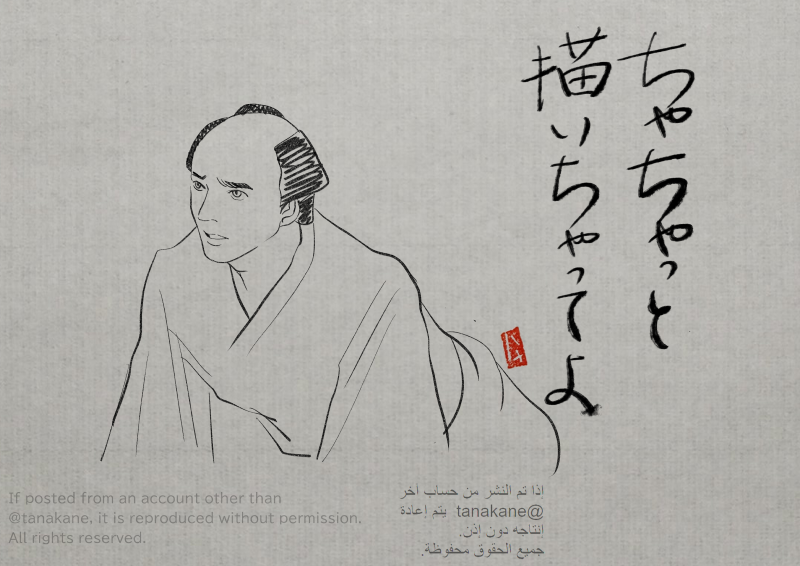 ちゃちゃっと
描いちゃってよ
If posted from an account other than
@tanakane, it is reproduced without permission.
All rights reserved.
إذا تم النشر من حساب آخر
@tanakane يتم إعادة
إنتاجه دون إذن.
جميع الحقوق محفوظة.